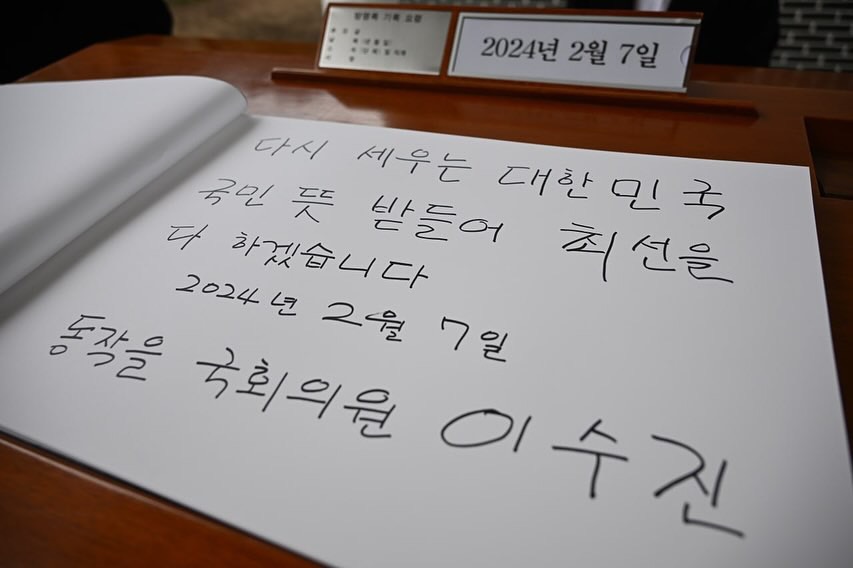 방명록 기록 요령
2024년 2월 7일
다시 세우는 대한민국
국민 뜻 받들어 최선을
다 하겠습니다
2024년 2월 7일
동작을 국회의원 이수진